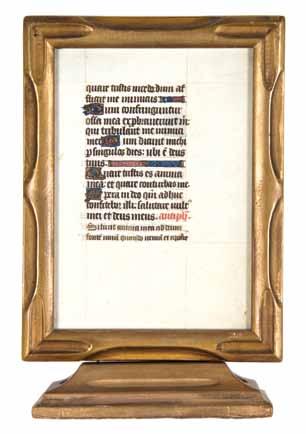 quare tristis incedo dum af
fligit me inimicus
Dum confringuntur
ossa mea exprobraverunt m
qui tribulant me inimici
mei Dum dicunt michi
p singulos dies: ubi e deus
tuus
Quare tristis es anima
mea et quare conturbas me
Spera in deo qm adhuc
confitebor illi: salutare vult
mei et deus meus. antiph
Sitivit anima mea ad deum
fontem vivum quando veniam et apparebo